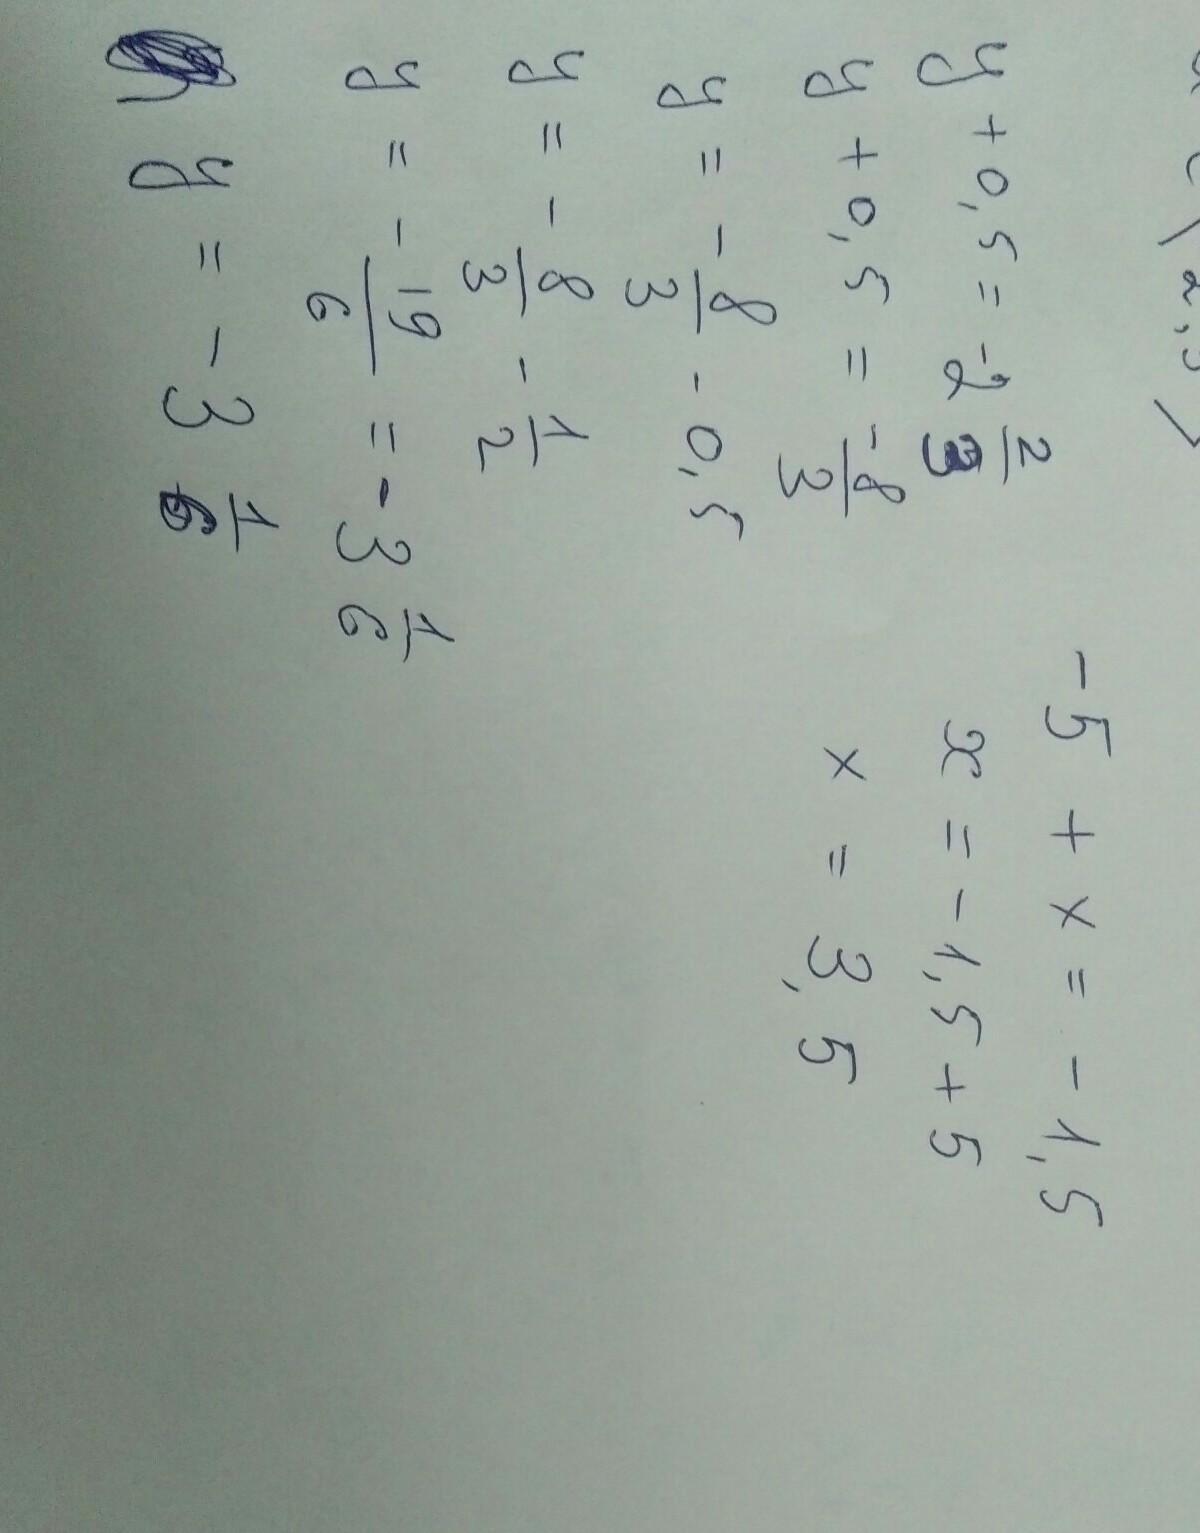 y + 0,5 = -2 2/3
y + 0,5 = -8/3
y = - 8/3 - 0,5
y = - 8/3 - 1/2
y = - 19/6 = -3 1/6
y = -3 1/6
-5 + x = -1,5
x = -1,5 + 5
x = 3,5